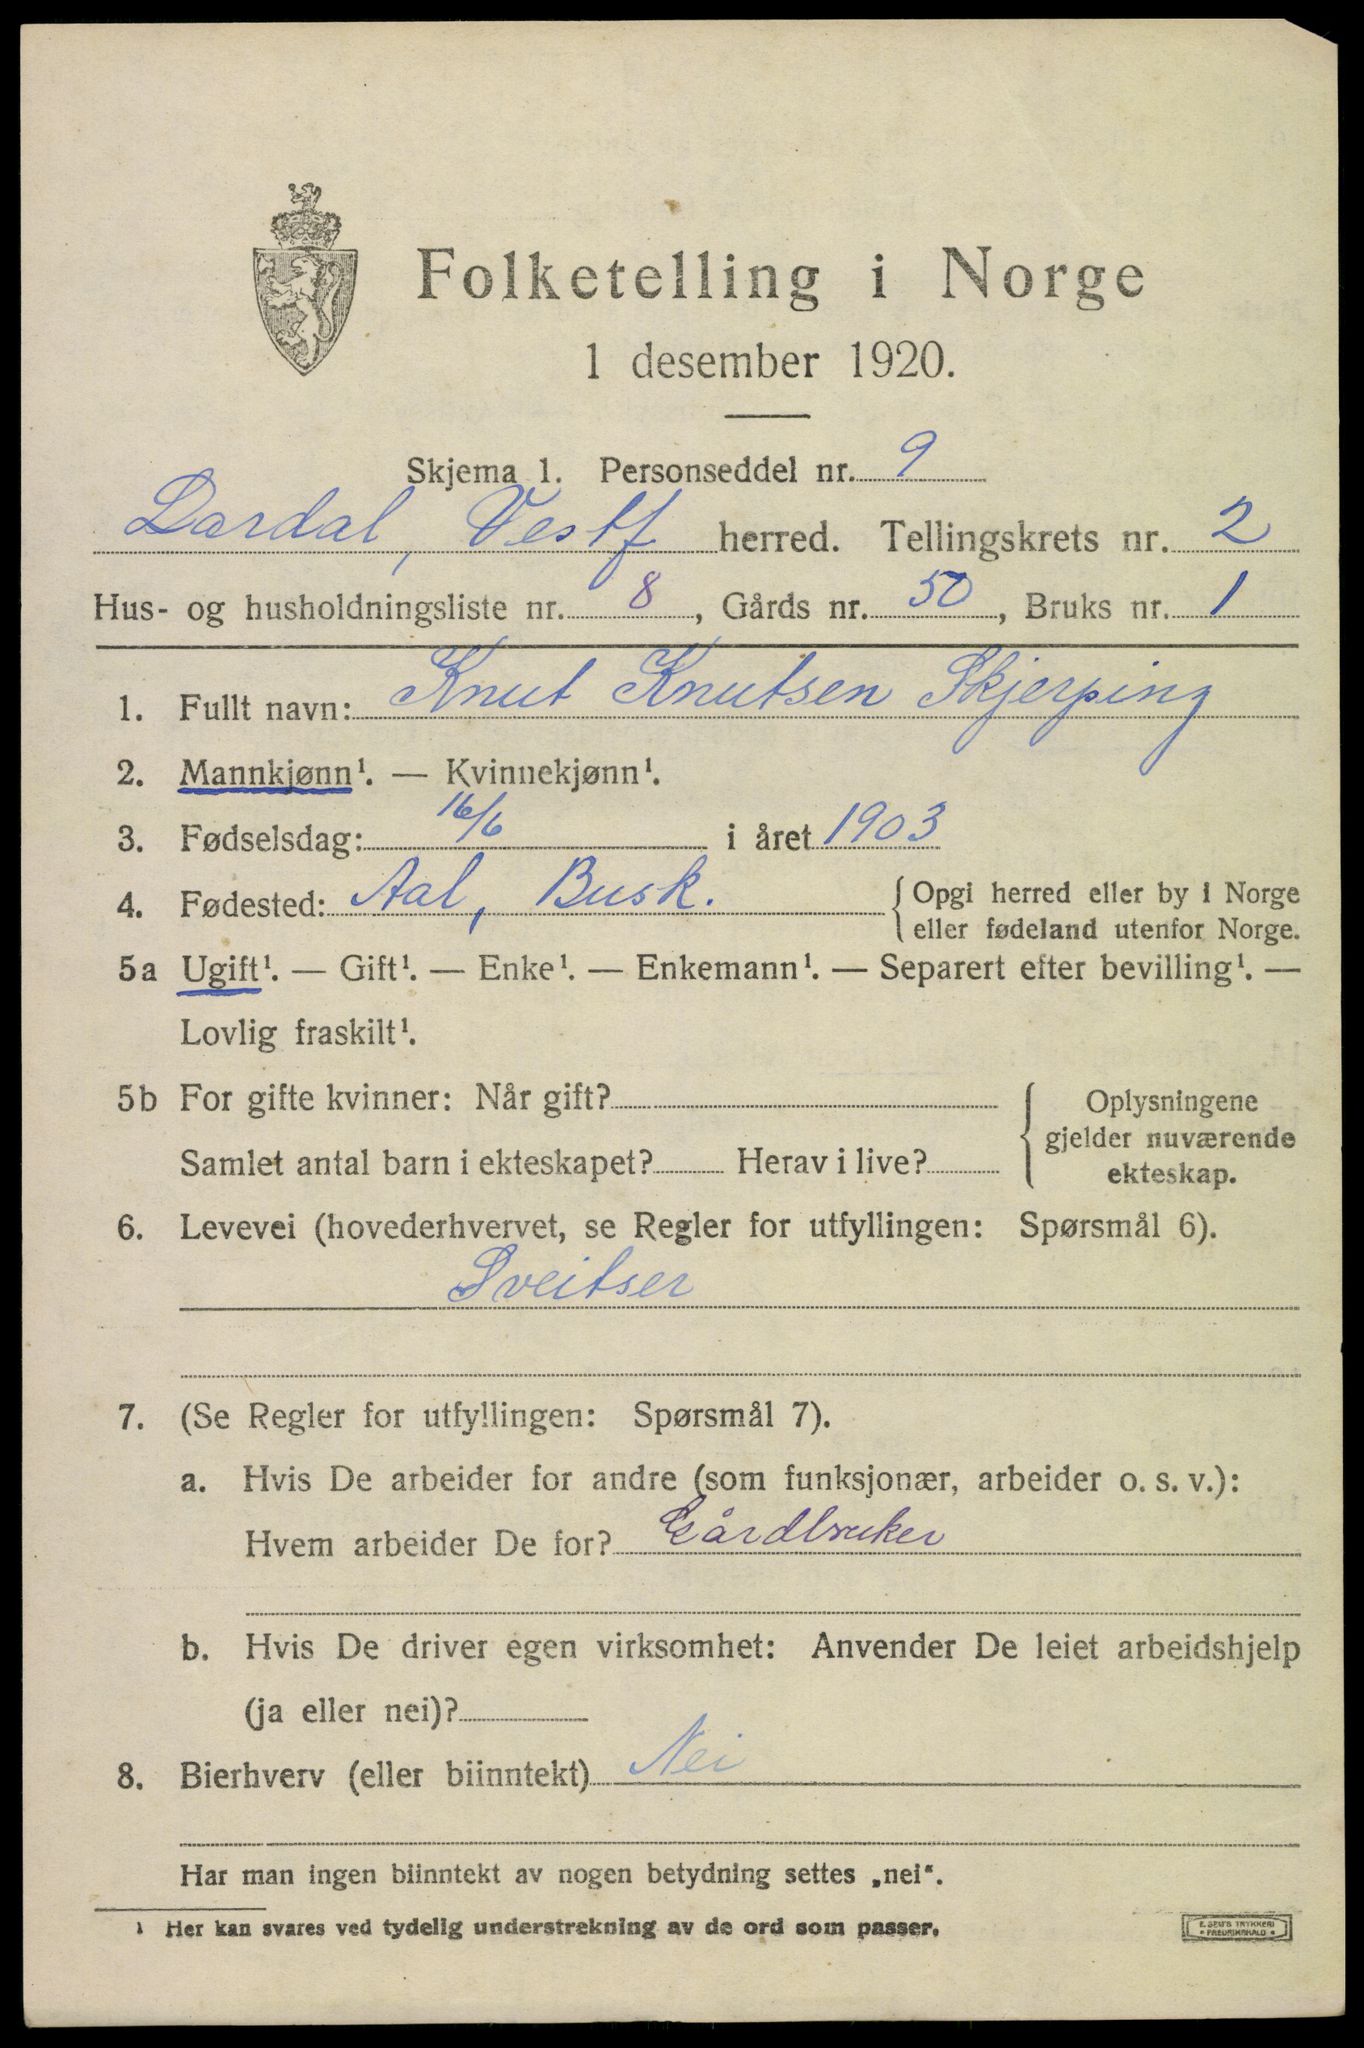 Folketelling i Norge
1 desember 1920.
Skjema 1. Personseddel nr. 9
Lardal, Vestf herred. Tellingskrets nr. 2
Hus- og husholdningsliste nr. 8, Gårds nr. 50, Bruks nr. 1
1. Fullt navn: Knut Knutsen Skjerping
2. Mannkjønn¹. — Kvinnekjønn¹.
3. Fødselsdag: 16/6 i året 1903
4. Fødested: Aal, Busk. { Opgi herred eller by i Norge
eller fødeland utenfor Norge.
5a Ugift¹. — Gift¹. — Enke¹. — Enkemann¹. — Separert efter bevilling¹. —
Lovlig fraskilt¹.
5b For gifte kvinner: Når gift? { Oplysningene
gjelder nuværende
Samlet antal barn i ekteskapet? Herav i live?
ekteskap.
6. Levevei (hovederhvervet, se Regler for utfyllingen: Spørsmål 6).
Sveitser
7. (Se Regler for utfyllingen: Spørsmål 7).
a. Hvis De arbeider for andre (som funksjonær, arbeider o. s. v.):
Hvem arbeider De for? Gårdbruker
b. Hvis De driver egen virksomhet: Anvender De leiet arbeidshjelp
(ja eller nei)?
8. Bierhverv (eller biinntekt) Nei
Har man ingen biinntekt av nogen betydning settes „nei“.
¹ Her kan svares ved tydelig understrekning av de ord som passer.
E. SEM'S TRYKKERI
FREDRIKSHALD